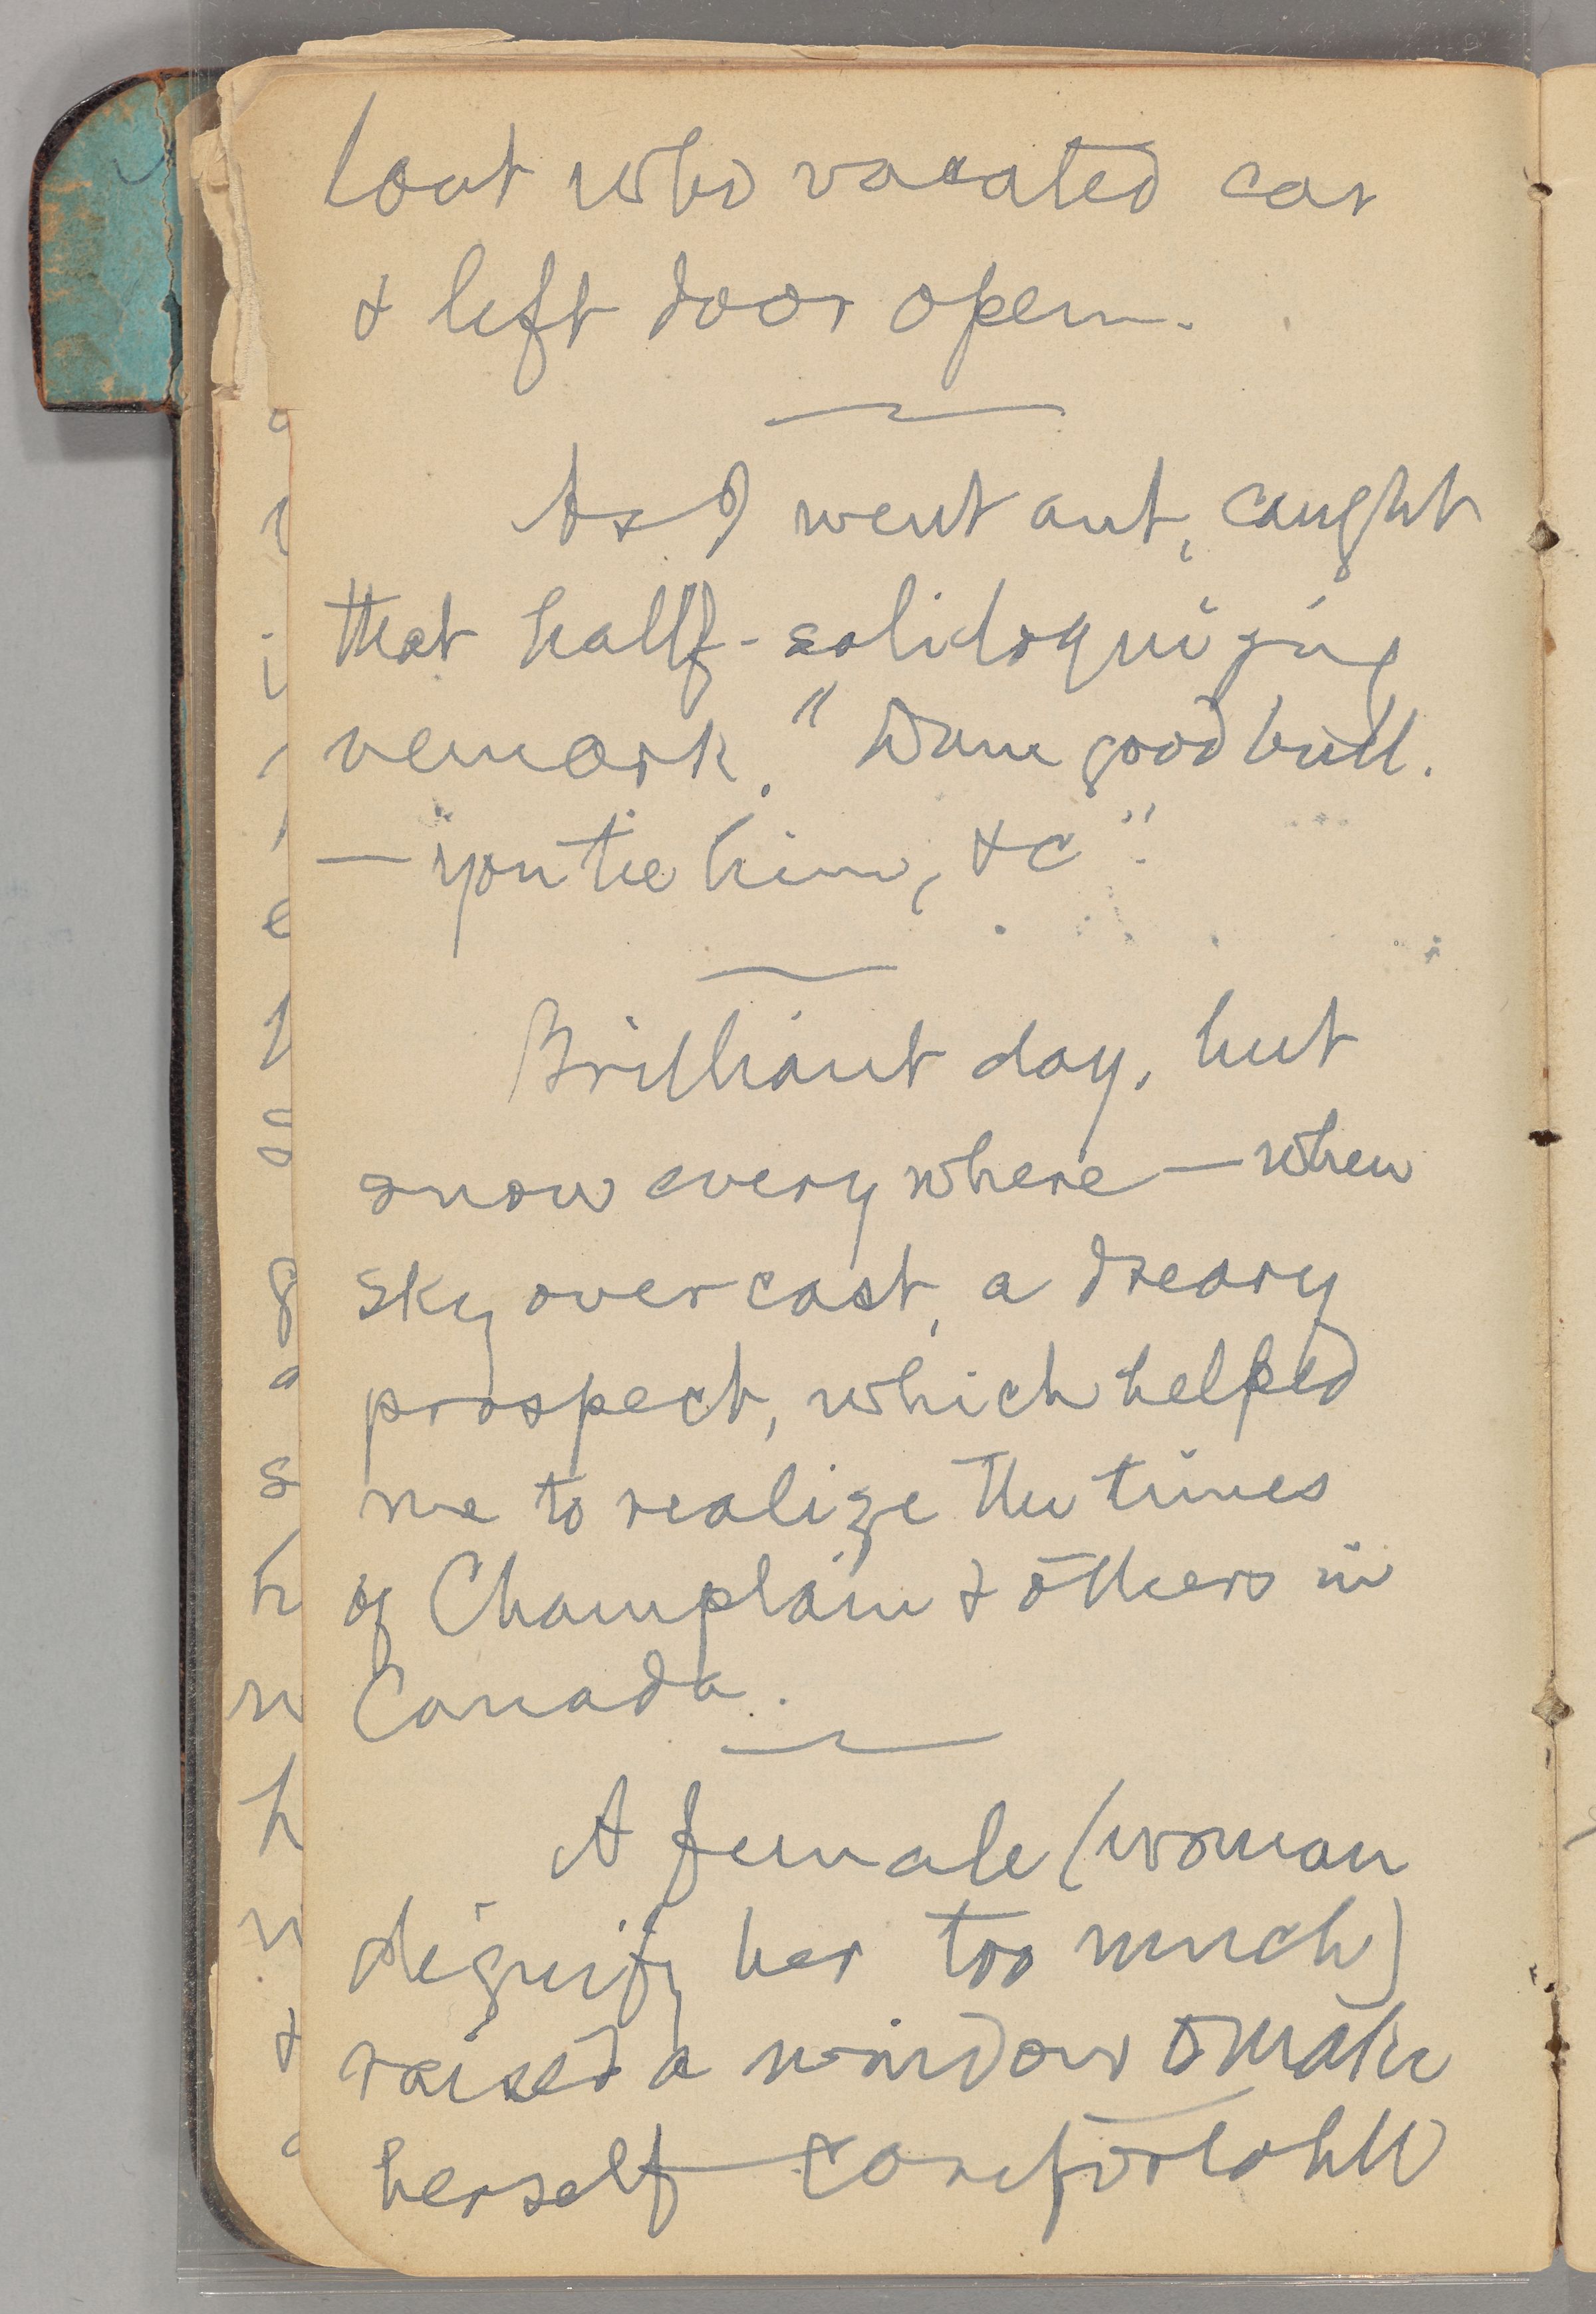 lout who vacated car
& left door open.
As I went out, caught
that half-soliloquizing
remark, "Damn good bull.
— you tie him, &c".
Brilliant day, but
snow everywhere — when
sky overcast, a dreary
prospect, which helped
me to realize the times
of Champlain & others in
Canada.
A female (woman
dignify her too much)
raised a window to make
herself comfortable